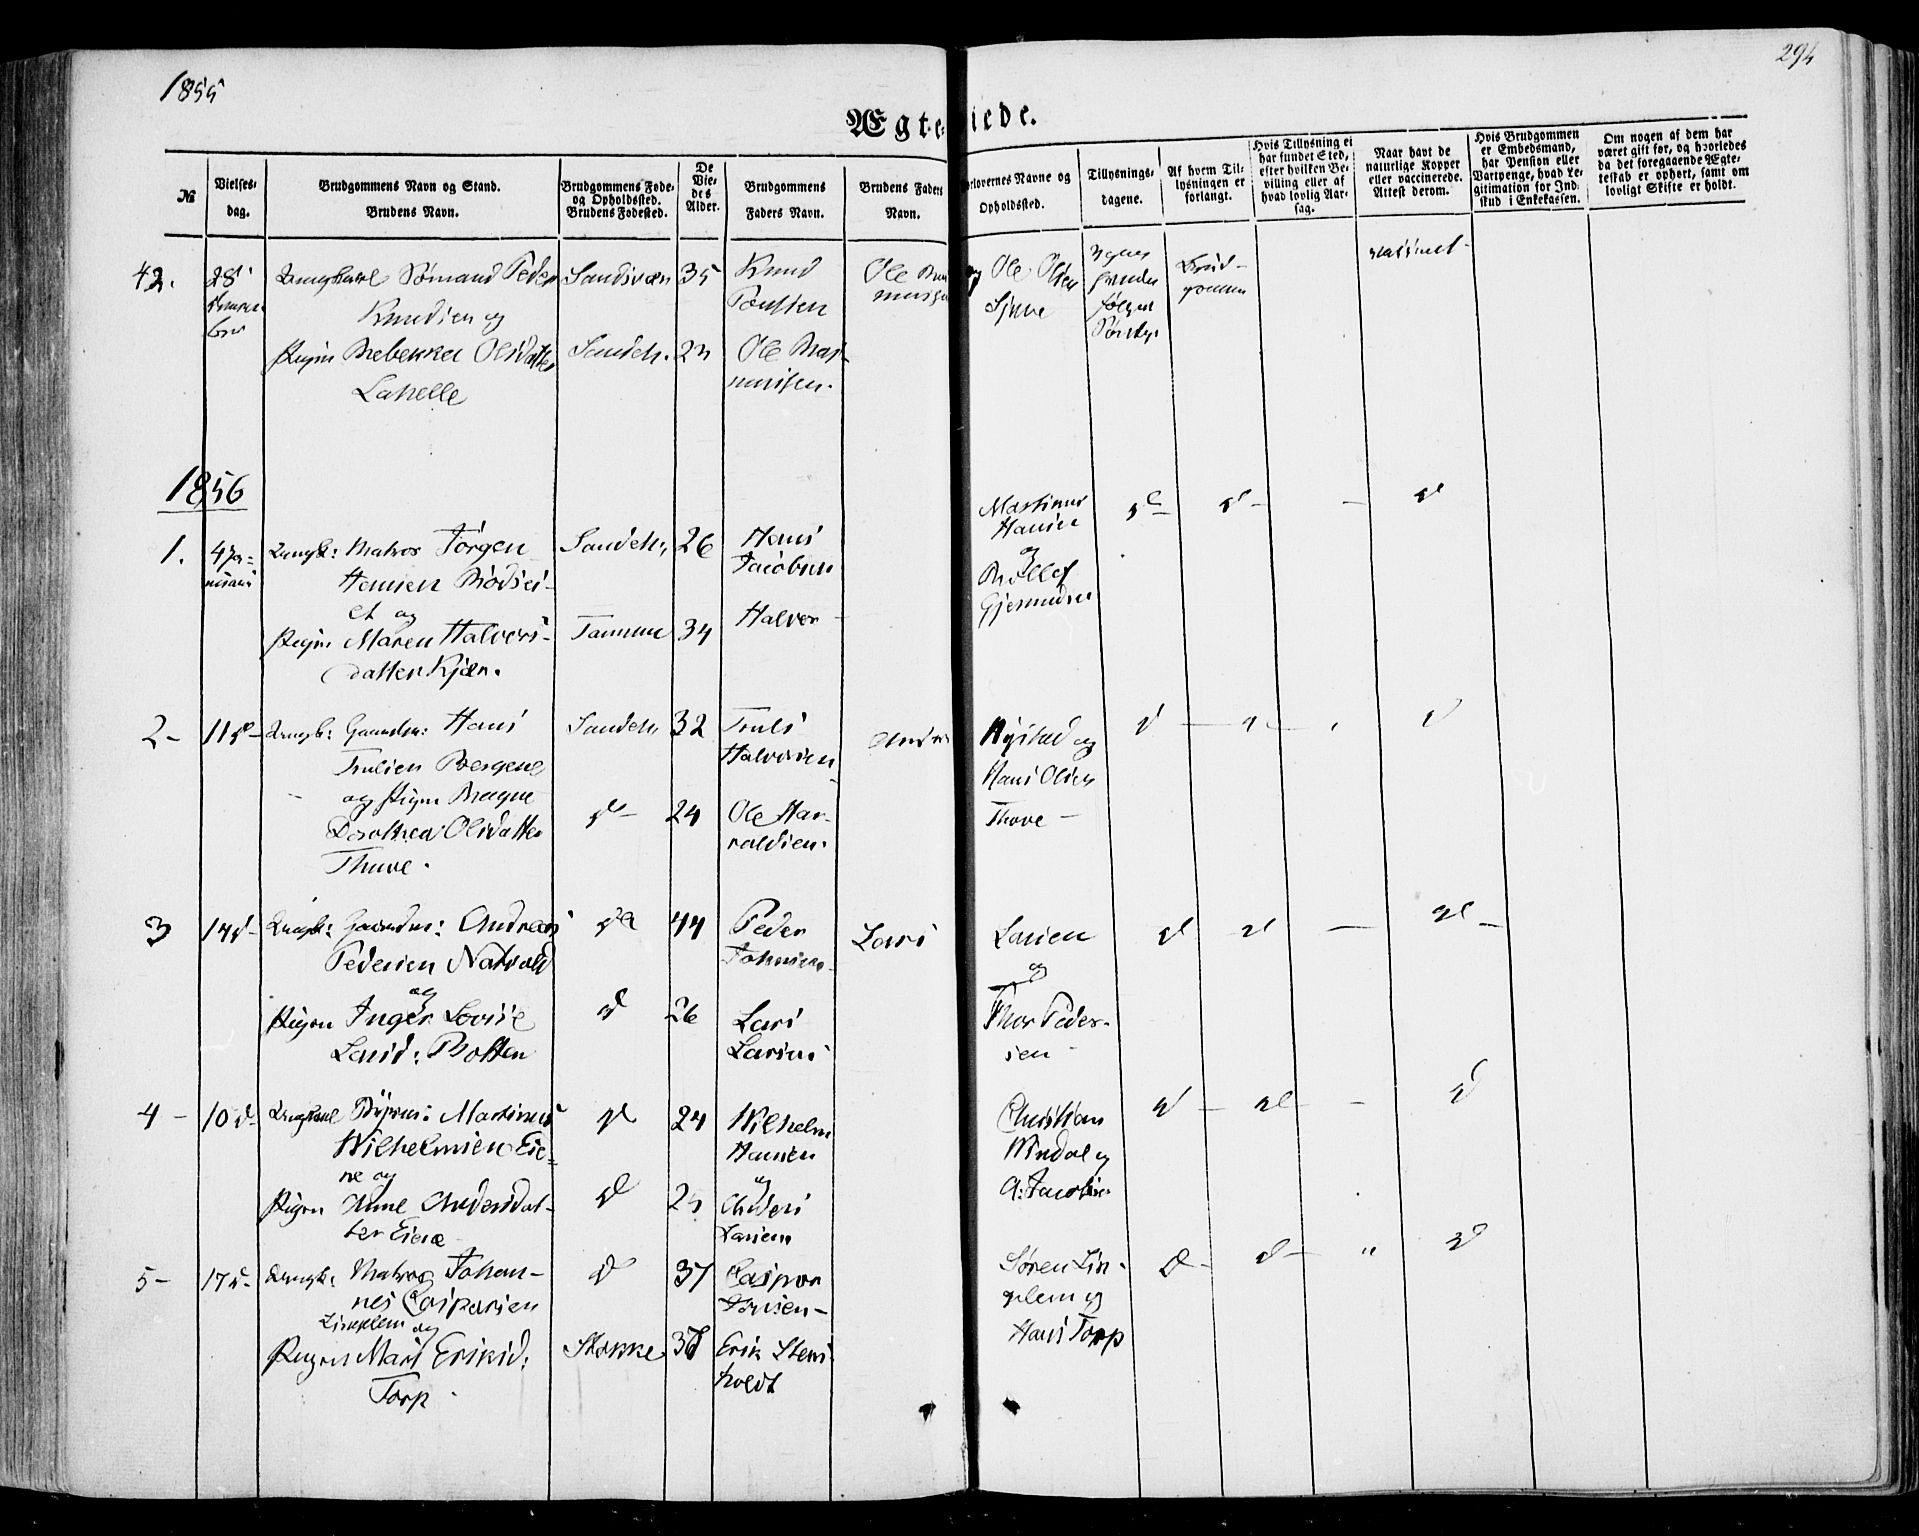 1855
294
Ægteviede.
№
Vielses-
dag.
Brudgommens Navn og Stand.
Brudens Navn.
Brudgommens Føde-
og Opholdssted.
Brudens Fødested.
De
Vie-
des
Alder.
Brudgommens
Faders Navn.
Brudens Faders
Navn.
Forlovernes Navne og
Opholdssted.
Tillysnings-
dagene.
Af hvem Til-
lysningen er
forlangt.
Hvis Tillysning ei
har fundet Sted,
efter hvilken Be-
villing eller af
hvad lovlig Aar-
sag.
Naar havt de
naturlige Kopper
eller vaccinerede.
Attest derom.
Hvis Brudgommen
er Embedsmand,
har Pension eller
Vartpenge, hvad Le-
gitimation for Ind-
skud i Enkekassen.
Om nogen af dem har
været gift før, og hvorledes
da det foregaaende Ægte-
teskab er ophørt, samt om
lovligt Skifte er holdt.
42.
28
Ungkarl Sømand Peder
Knudsen og
Pigen Rebekka Olsdatter
Lahelle
Sandsvær
Sandeh.
35
Knud
Ole Ras-
mussen.
Ole
og Ole Olsen
Brud-
gommen
vaccineret
1856
1.
4 Ja-
nuari
Ungk: Matros Jørgen
Hansen Rødsei-
et og
Pigen Maren Halvors-
datter Kjær.
Sandeh.
26
34
Hans
Jacobsen
Halvor
Martinus
Hansen
og
Rollef
Gjermundsen
d
d
–
d
2-
11 d-
Ungk: Gaardm: Hans
Trulsen Bergene
og Pigen
Dorothea Olsdatter
Thuve.
Sandeh.
d
32
24
Truls
Halvorsen
Ole Har-
raldsen.
og
Hans Olsen
Thove –
d
d
3
14 d-
Ungk: Gaardm: Andreas
Pedersen Natvald
og
Pigen Inger Lovise
Larsd: Botten
d
d
44
26
Peder
Johnsen
Lars
Larsen
Lars
Larsen
og
Thor Peder-
sen
d
d
–
d
4 -
10 d-
Ungkarl Martinus
Wilhelmsen Eie-
ne og
Pigen Anne Andersdat-
ter Eiene
d
d
24
25
Wilhelm
Hansen
og
Anders
Larsen
Christian
Windal og
A: Jacobsen
d
d
–
d
5-
17 d-
Ungk: Matros Johan-
nes Caspersen
Linklem og
Pigen Mari Eriksd:
Torp
d
Stokke
37
Caspar
Jonsen-
Erik Stens-
holdt
Søren Lin-
klem og
Hans Torp
d
d
"
d